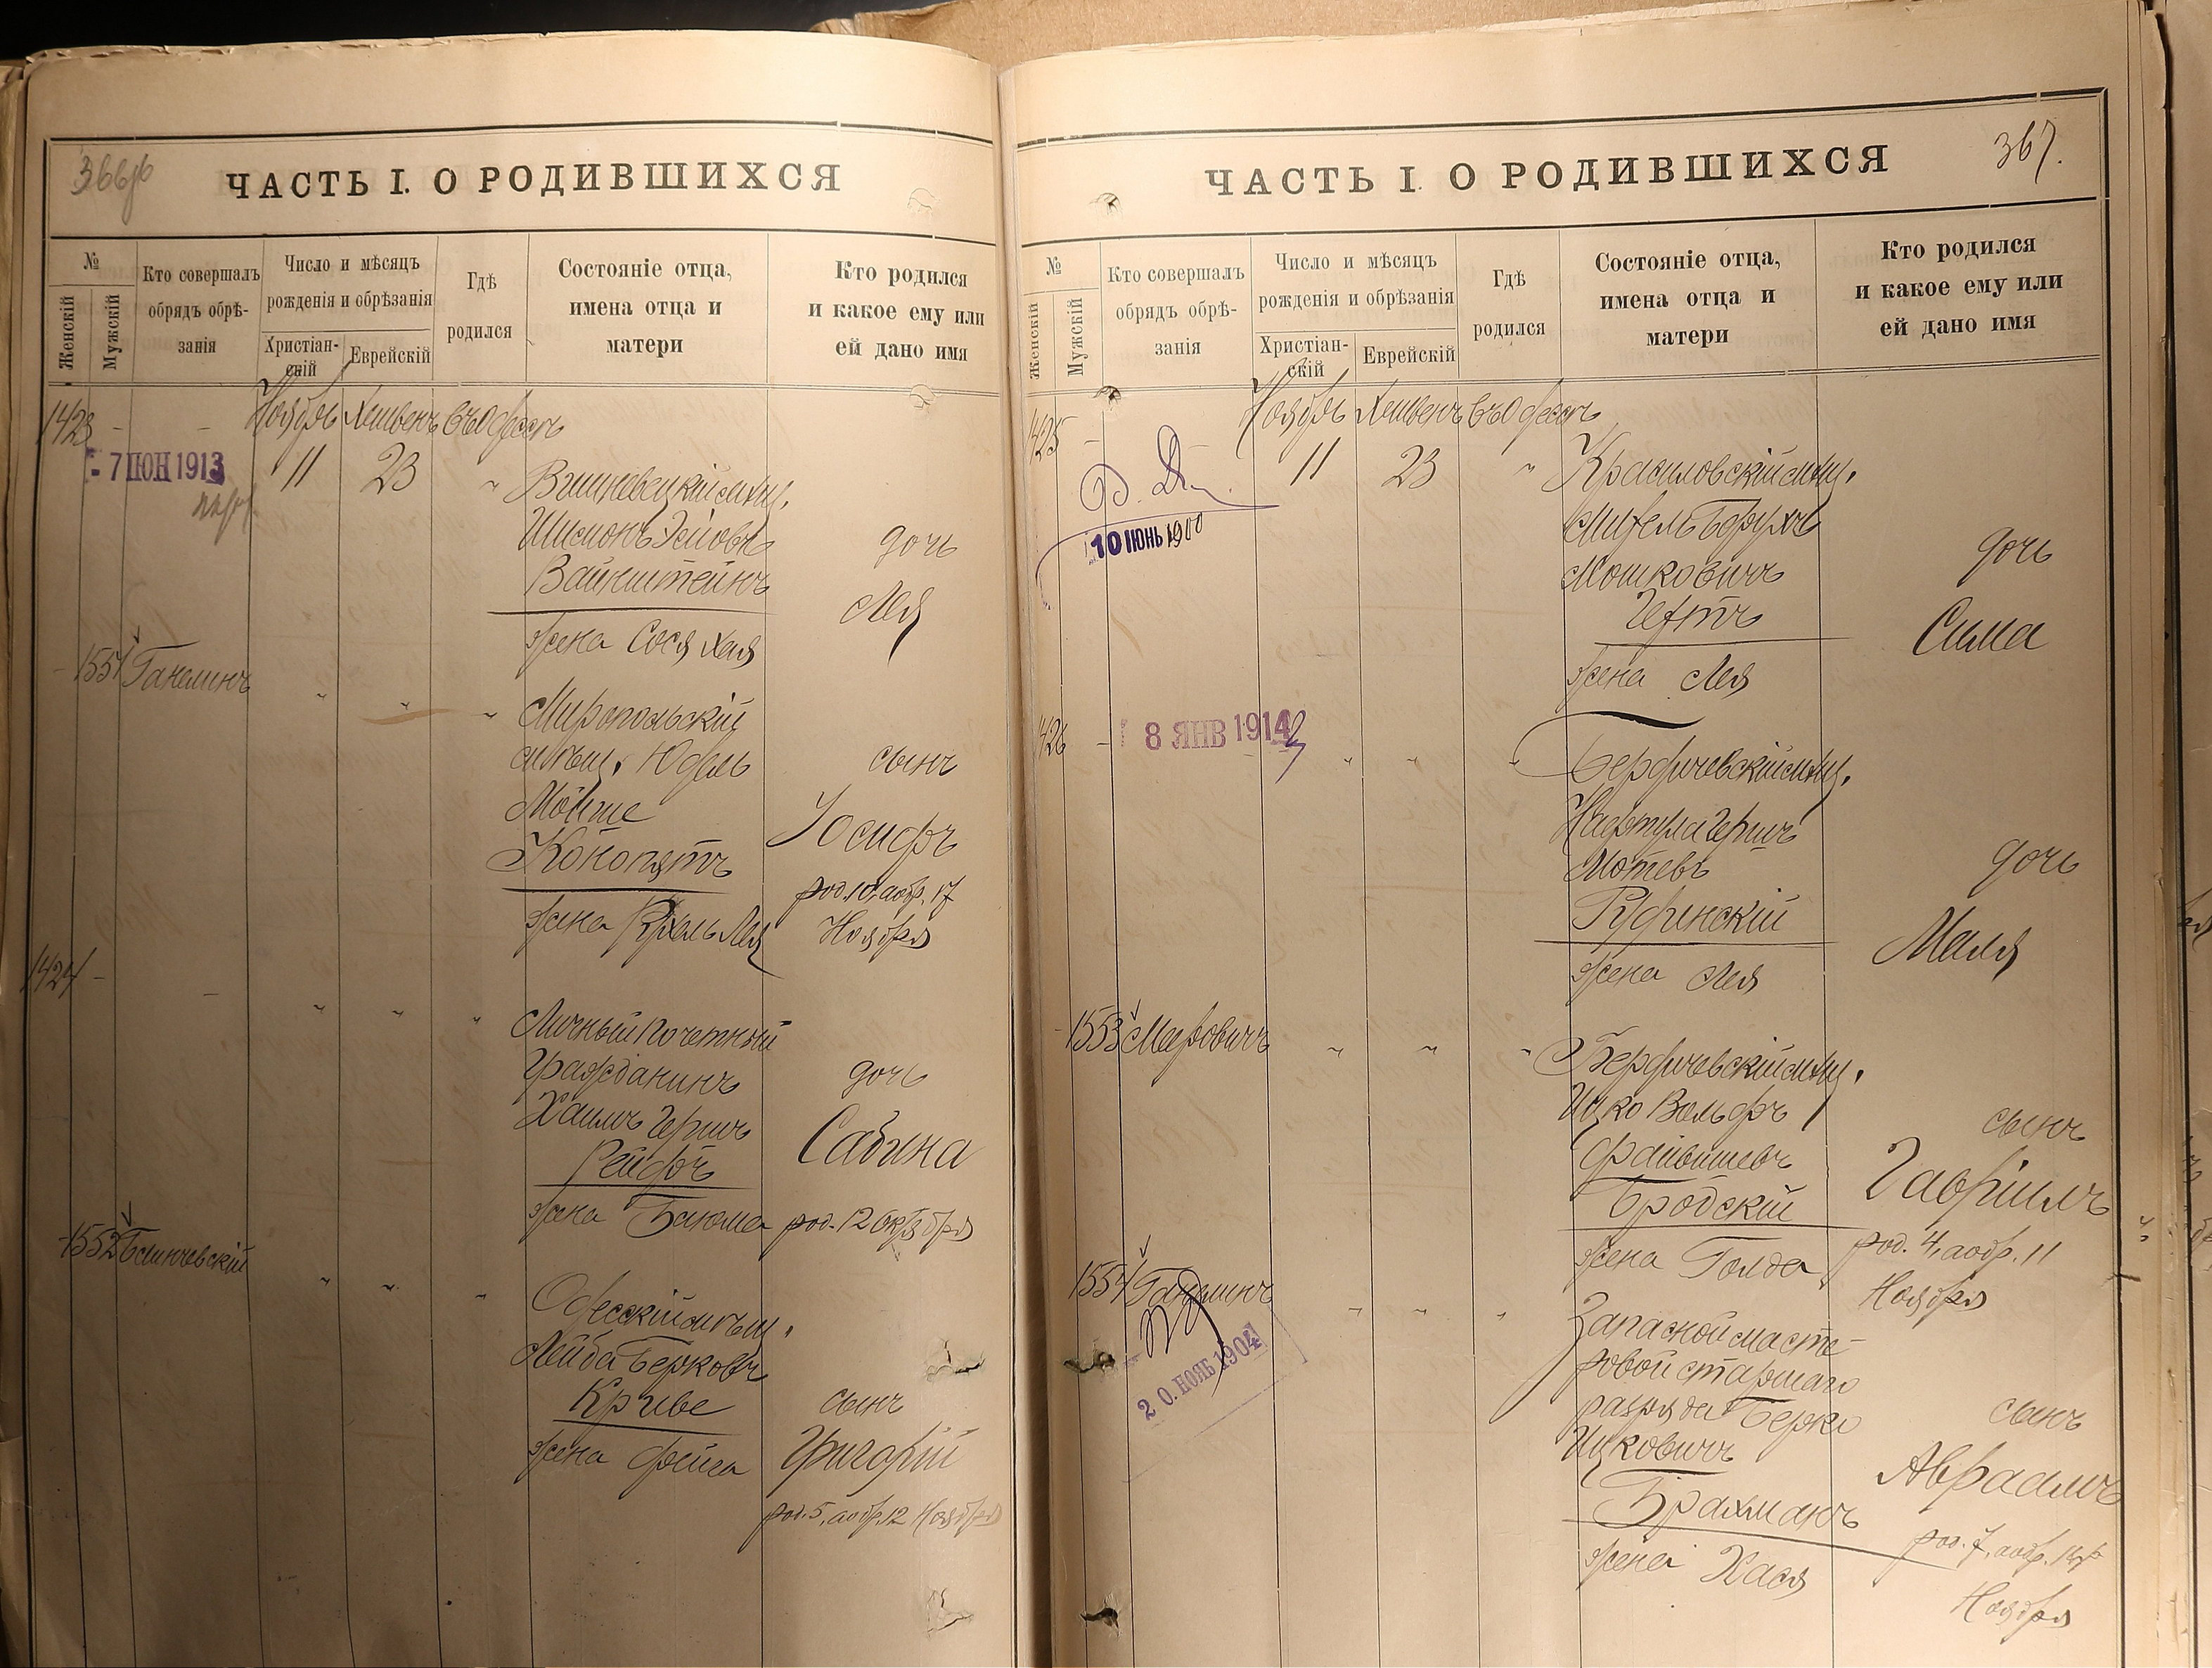 366об
ЧАСТЬ I. О РОДИВШИХСЯ
№
Женскій
Мужскій
Кто совершалъ
обрядъ обрѣ-
занія
Число и мѣсяцъ
рожденія и обрѣзанія
Христіан-
скій
Еврейскій
Гдѣ
родился
Состояніе отца,
имена отца и
матери
Кто родился
и какое ему или
ей дано имя
1423 - - Ноябрь Хешвенъ въ Одессѣ
- 7 ІЮН 1913
11 23 "
Вишневецкій мѣщ.
Шимонъ
Вайнштейнъ
жена Сося Хая
дочь
Лея
- 1551 Ганелинъ " " "
Миропольскій
мѣщ. Юдель
Мойше
Конопятъ
жена Лея
сынъ
Іосифъ
род. 10, аобр. 17
Ноября
1424 - - " " "
Личный Почетный
Гражданинъ
Хаимъ Гершъ
Рейфъ
жена Блюма
дочь
Сабина
род. 12 Октября
- 1552 " " "
Одесскій мѣщ.
Лейба Берковъ
Криве
жена Фейга
сынъ
Григорій
род. 5, аобр. 12 Ноября
367.
ЧАСТЬ I. О РОДИВШИХСЯ
№
Женскій
Мужскій
Кто совершалъ
обрядъ обрѣ-
занія
Число и мѣсяцъ
рожденія и обрѣзанія
Христіан-
скій
Еврейскій
Гдѣ
родился
Состояніе отца,
имена отца и
матери
Кто родился
и какое ему или
ей дано имя
1425 - Ноябрь Хешвенъ въ Одессѣ
11 23 "
10 ІЮНЬ 1900
Красиловскій мѣщ.
Михель Борухъ
Мошковичъ
Гехтъ
жена Лея
дочь
Сима
1426 - " " "
8 ЯНВ 1914
Бердичевскій мѣщ.
Нафтула Гершъ
Мотевъ
Рудинскій
жена Лея
дочь
Маля
- 1553 Меировичъ " " "
Бердичевскій мѣщ.
Ицко Вольфъ
Файвишевъ
Бродскій
жена Голда
сынъ
Гавріилъ
род. 4, аобр. 11
Ноября
1554 Ганелинъ " " "
20. НОЯБ 1904
Запасной масте-
ровой старшаго
разряда Берко
Ицковичъ
Брахманъ
жена Хася
сынъ
Авраамъ
род. 7, аобр. 14
Ноября